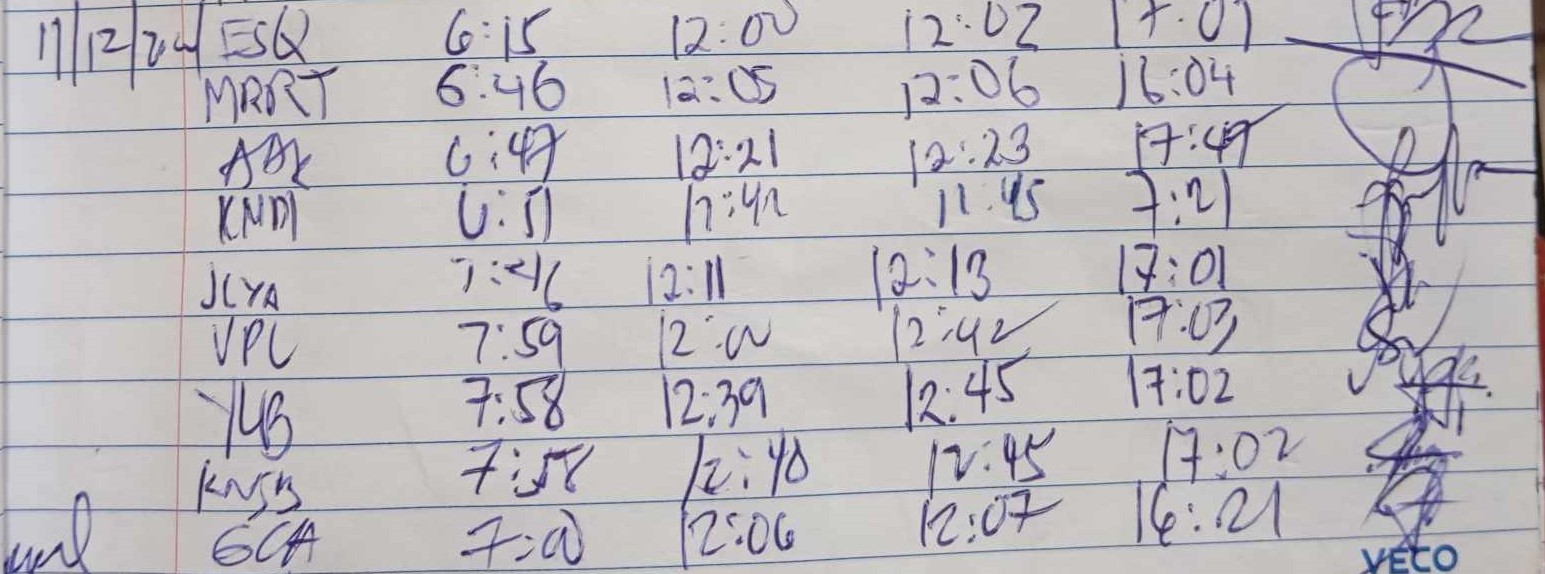 17/12/24 ESQ 6:15 12:00 12:02 17:01
MRRT 6:46 12:05 12:06 16:04
AAK 6:47 12:21 12:23 17:47
KMDI 6:51 12:42 12:45 7:21
JCYA 7:46 12:11 12:13 17:01
VPL 7:59 12:00 12:42 17:03
YLB 7:58 12:39 12:45 17:02
KNSB 7:58 12:40 12:45 17:02
GCA 7:00 12:06 12:07 16:21
VECO